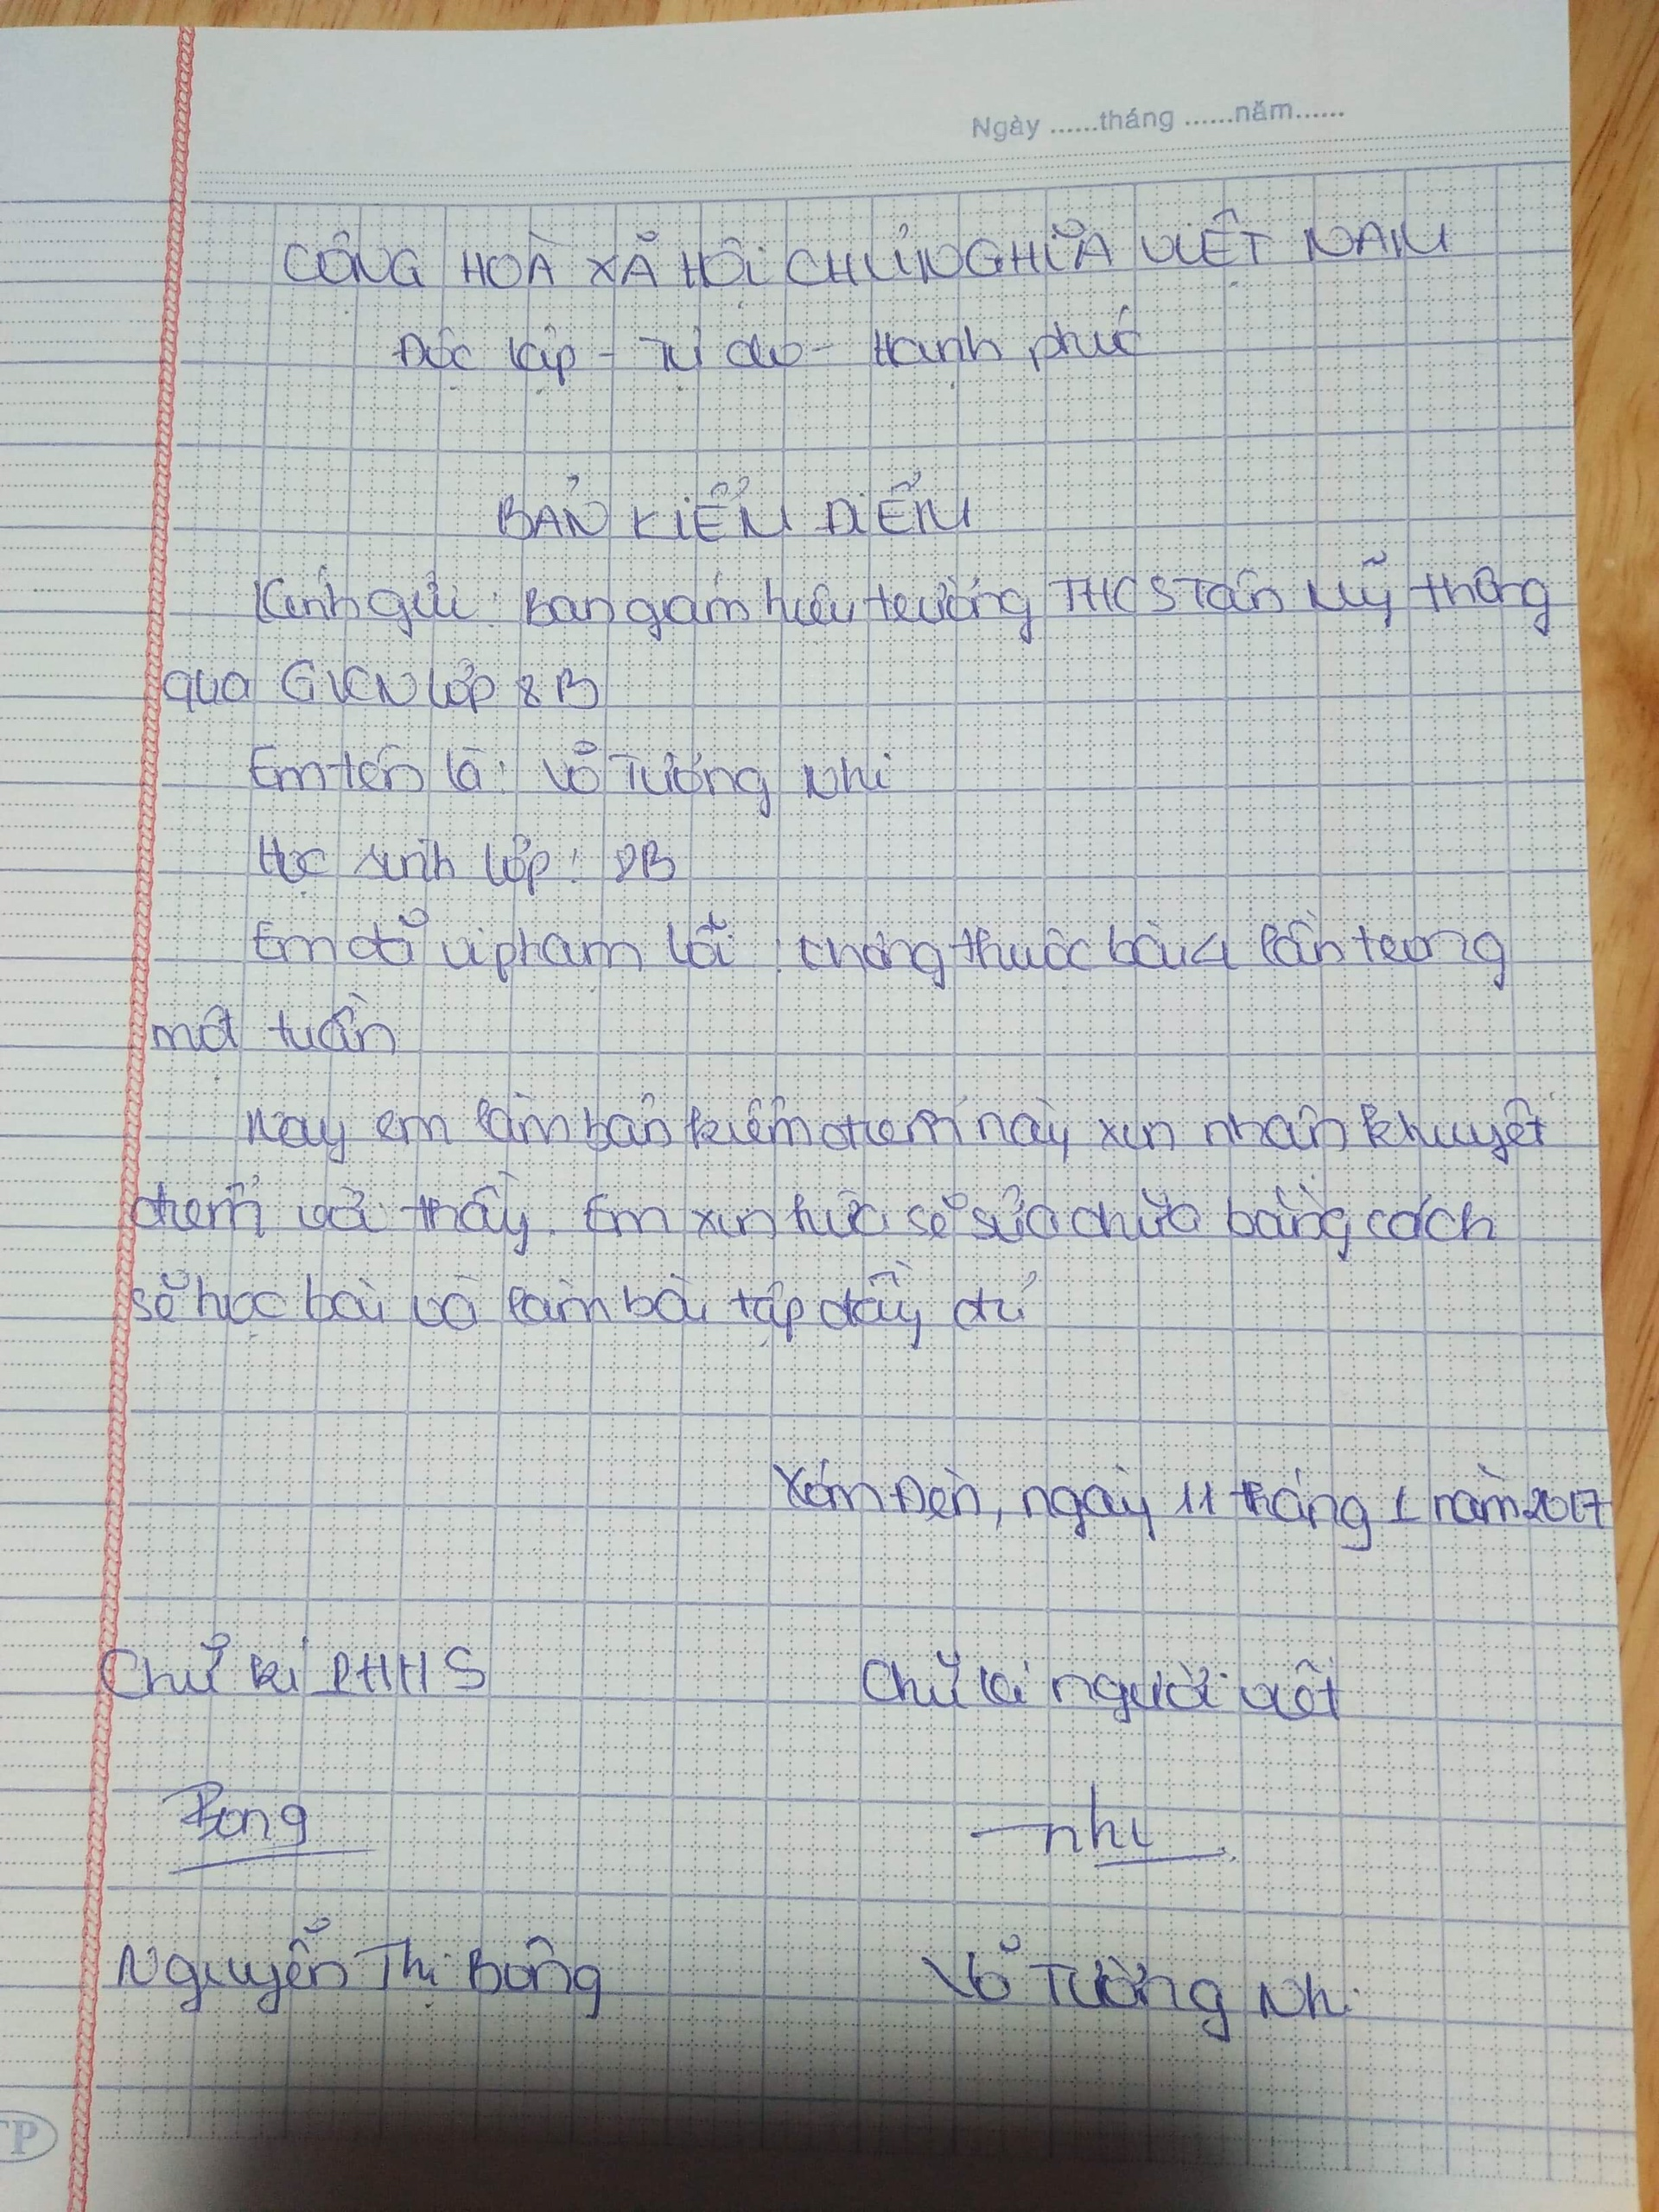 Ngày ......tháng ......năm......
CỘNG HOÀ XÃ HỘI CHỦ NGHĨA VIỆT NAM
Độc lập - Tự do - Hạnh phúc
BẢN KIỂM ĐIỂM
Kính gửi: Ban giám hiệu trường THCS Tân Mỹ thông
qua GVCN lớp 8B
Em tên là: Võ Tường Nhi
Học sinh lớp: 8B
Em đã vi phạm lỗi: chông thuộc bài 4 lần trong
một tuần
Nay em làm bản kiểm điểm này xin nhận khuyết
điểm với thầy. Em xin hứa sẽ sửa chữa bằng cách
sẽ học bài và làm bài tập đầy đủ
Xóm Đèn, ngày 11 tháng 1 năm 2017
Chữ kí PHHS
Chữ kí người viết
Bông
nhi
Nguyễn Thị Bông
Võ Tường Nhi
TP